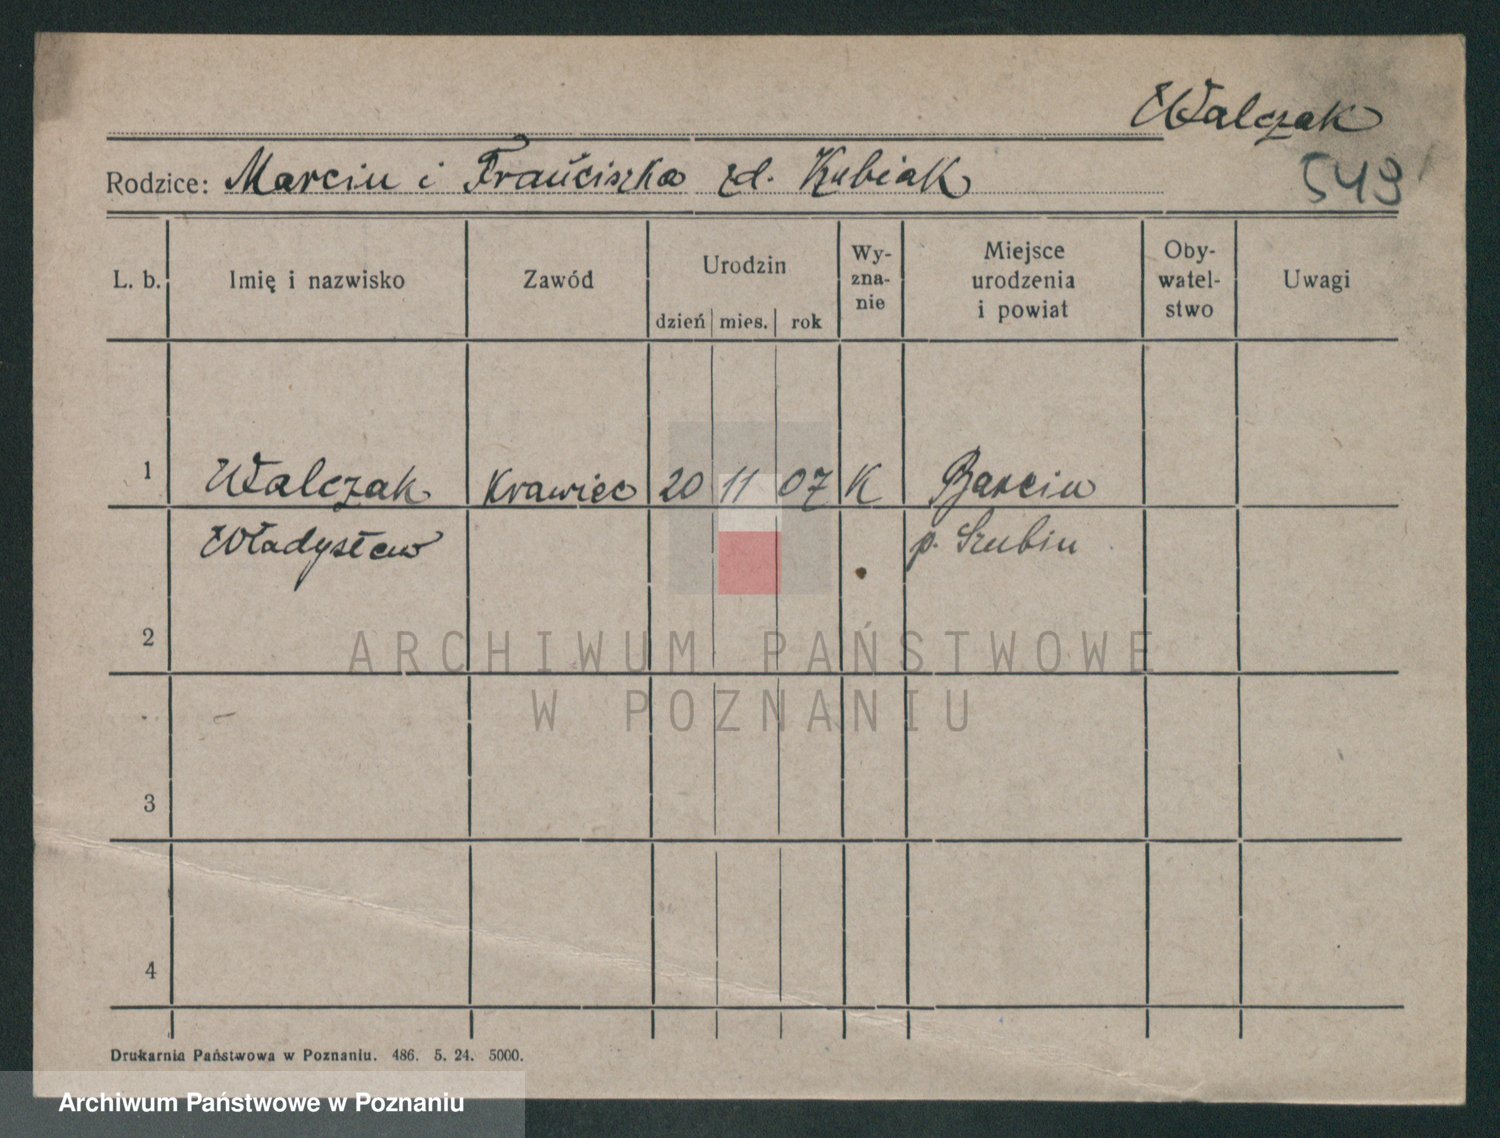 Walczak
Rodzice: Marcin i Franciszka zd. Kubiak
549
L. b.
Imię i nazwisko
Zawód
Urodzin
dzień mies. rok
Wy-
zna-
nie
Miejsce
urodzenia
i powiat
Oby-
watel-
stwo
Uwagi
1 Walczak Krawiec 20 11 07 K Barcin
Władysław p. Szubin
2
ARCHIWUM PAŃSTWOWE
W POZNANIU
3
4
Drukarnia Państwowa w Poznaniu. 486. 5. 24. 5000.
Archiwum Państwowe w Poznaniu